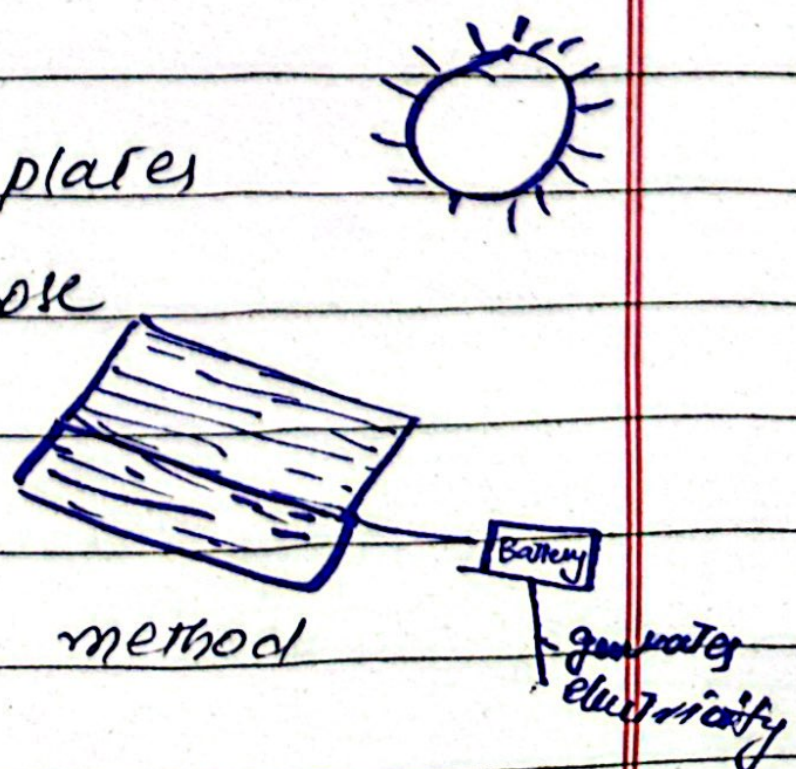 plates
ose
Battery
method
generates
electricity